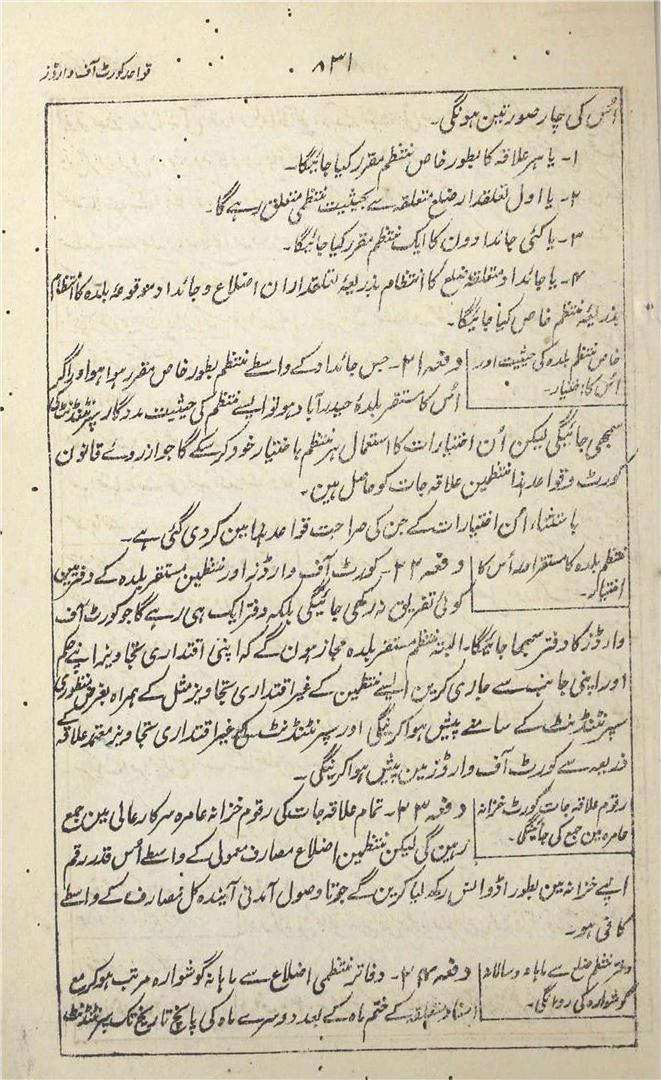 ۸۳۱
قواعد کورٹ آف وارڈز
اُس کی چار صورتین ہونگی۔
۱- یا ہر علاقہ کا بطور خاص منتظم مقرر کیا جائیگا۔
۲- یا اول تعلقدار ضلع متعلقہ سے بحیثیت منتظمی متعلق رہے گا۔
۳- یا کئی جائدادون کا ایک منتظم مقرر کیا جائیگا۔
۴- یا جائداد متعلقہ ضلع کا انتظام بذریعۂ تعلقداران اضلاع و جائداد موقوعۂ بلدہ کا انتظام
بذریعۂ منتظم خاص کیا جائیگا۔
خاص منتظم بلدہ کی حیثیت اور
اُس کا اختیار۔
دفعہ ۳۱- جس جائداد کے واسطے منتظم بطور خاص مقرر ہوا ہو اور اگر
اُس کا مستقر بلدۂ حیدرآباد ہو تو ایسے منتظم کی حیثیت مددگار سپرنٹنڈنٹ کی
سمجھی جائیگی لیکن اُن اختیارات کا استعمال ہر منتظم با ختیار خود کر سکے گا جو از روئے قانون
کورٹ و قواعد ہذا منتظمین علاقہ جات کو حاصل ہین۔
باستثناء اُن اختیارات کے جن کی صراحت قواعد ہذا مین کر دی گئی ہے۔
منتظم بلدہ کا مستقر اور اُس کا
اختیار۔
دفعہ ۳۲- کورٹ آف وارڈز اور منتظمین مستقر بلدہ کے دفتر مین
کوئی تفریق نہ رکھی جائیگی بلکہ دفتر ایک ہی رہے گا جو کورٹ آف
وارڈز کا دفتر سمجھا جائیگا۔ البتہ منتظم مستقر بلدہ مجاز ہون گے کہ اپنی اقتداری تجاویز اپنے حکم
اور اپنی جانب سے جاری کرین ایسے منتظمین کے غیر اقتداری تجاویز مثل کے ہمراہ بغرض منظوری
سپرنٹنڈنٹ کے سامنے پیش ہوا کرینگی اور سپرنٹنڈنٹ کے غیر اقتداری تجاویز معتمد علاقہ کے
ذریعہ سے کورٹ آف وارڈز مین پیش ہوا کرینگی۔
رقوم علاقہ جات کورٹ خزانہ
عامرہ مین جمع کی جائینگی۔
دفعہ ۳۳- تمام علاقہ جات کی رقوم خزانہ عامرہ سرکار عالی مین جمع
رہین گی لیکن منتظمین اضلاع مصارف معمولی کے واسطے اُس قدر رقم
اپنے خزانہ مین بطور اڈوانس رکھ لیا کرین گے جو تا وصول آمدنی آیندہ کل مصارف کے واسطے
کافی ہو۔
دفتر منتظم ضلع سے ماہانہ و سالانہ
گوشوارہ کی روانگی۔
دفعہ ۳۴- دفاتر منتظمی اضلاع سے ماہانہ گوشوارہ مرتب ہو کر مع
اسناد متعلقہ کے ختم ماہ کے بعد دوسرے ماہ کی پانچ تاریخ تک سپرنٹنڈنٹ